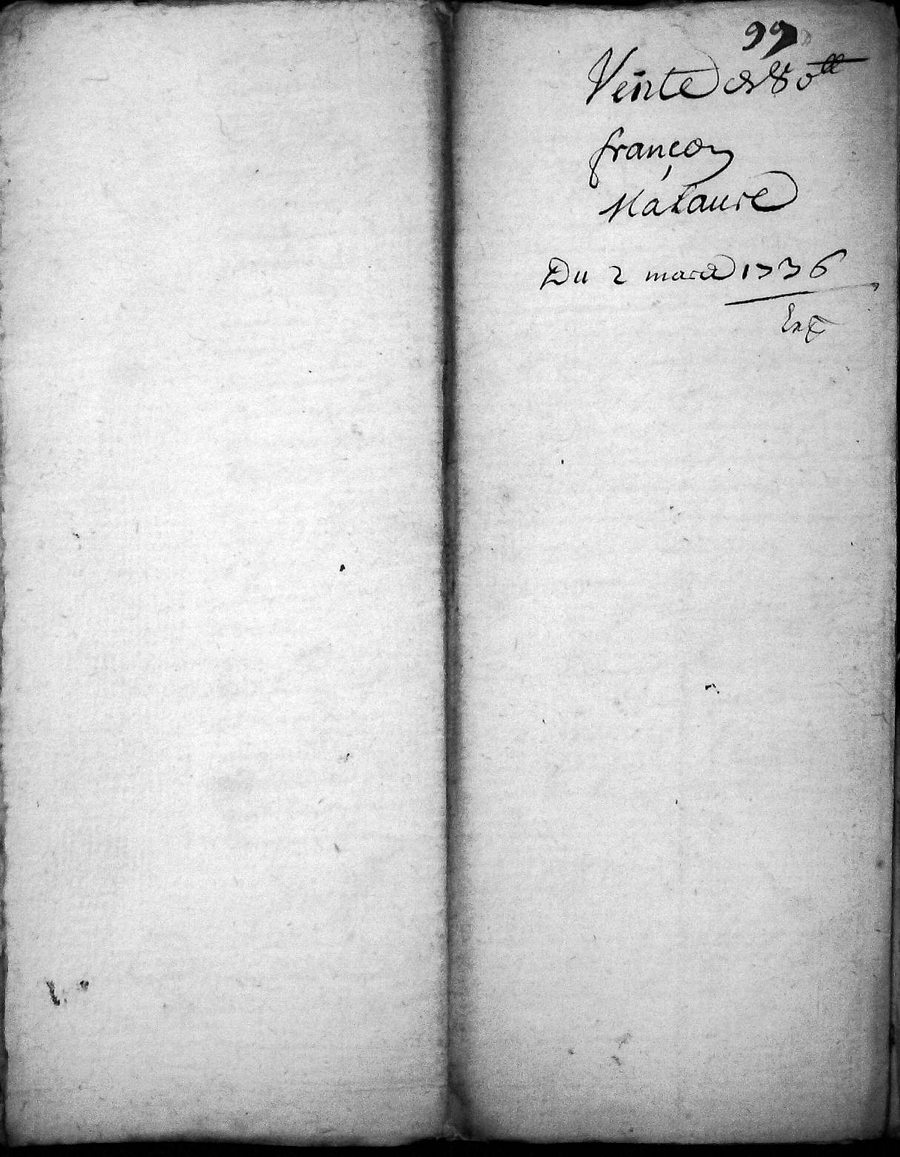 99
Vente de 80ᵗᵗ
françois
Nazaure
Du 2 mars 1736